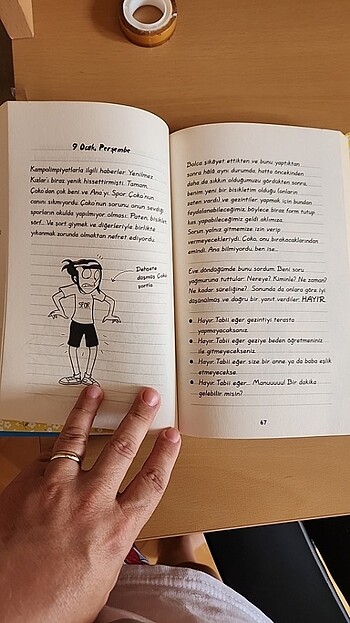 9 Ocak, Perşembe
Kampolimpiyatlarla ilgili haberler Yenilmez
Kızlar'ı biraz yenik hissettirmişti. Tamam,
Çoko'dan çok beni ve Ana'yı. Spor, Çoko'nun
canını sıkmıyordu. Çoko'nun sorunu onun sevdiği
sporların okulda yapılmıyor olması. Paten, bisiklet,
sörf... Ve şort giymek ve diğerleriyle birlikte
yıkanmak zorunda olmaktan nefret ediyordu.
Dehşete
düşmüş Çoko
şortla
SPOR
Bolca şikâyet ettikten ve bunu yaptıktan
sonra hâlâ aynı durumda, hatta öncekinden
daha da sıkkın olduğumuzu gördükten sonra,
benim yeni bir bisikletim olduğu (onların
zaten vardı) ve gezintiler yapmak için bundan
faydalanabileceğimiz, böylece biraz form tutup
kas yapabileceğimiz geldi aklımıza.
Sorun, yalnız gitmemize izin verip
vermeyecekleriydi. Çoko, onu bırakacaklarından
emindi. Ana bilmiyordu, ben ise...
Eve döndüğümde bunu sordum. Beni soru
yağmuruna tuttular. Nereye? Kiminle? Ne zaman?
Ne kadar süreliğine? Sonunda da onlara göre iyi
düşünülmüş ve doğru bir yanıt verdiler: HAYIR.
● Hayır. Tabii eğer gezintiyi terasta
yapmayacaksanız.
● Hayır. Tabii eğer geziye beden öğretmeniniz
ile gitmeyecekseniz.
● Hayır. Tabii eğer size bir anne ya da baba eşlik
etmeyecekse.
● Hayır. Tabii eğer... Manuuuuu! Bir dakika
gelebilir misin?
67